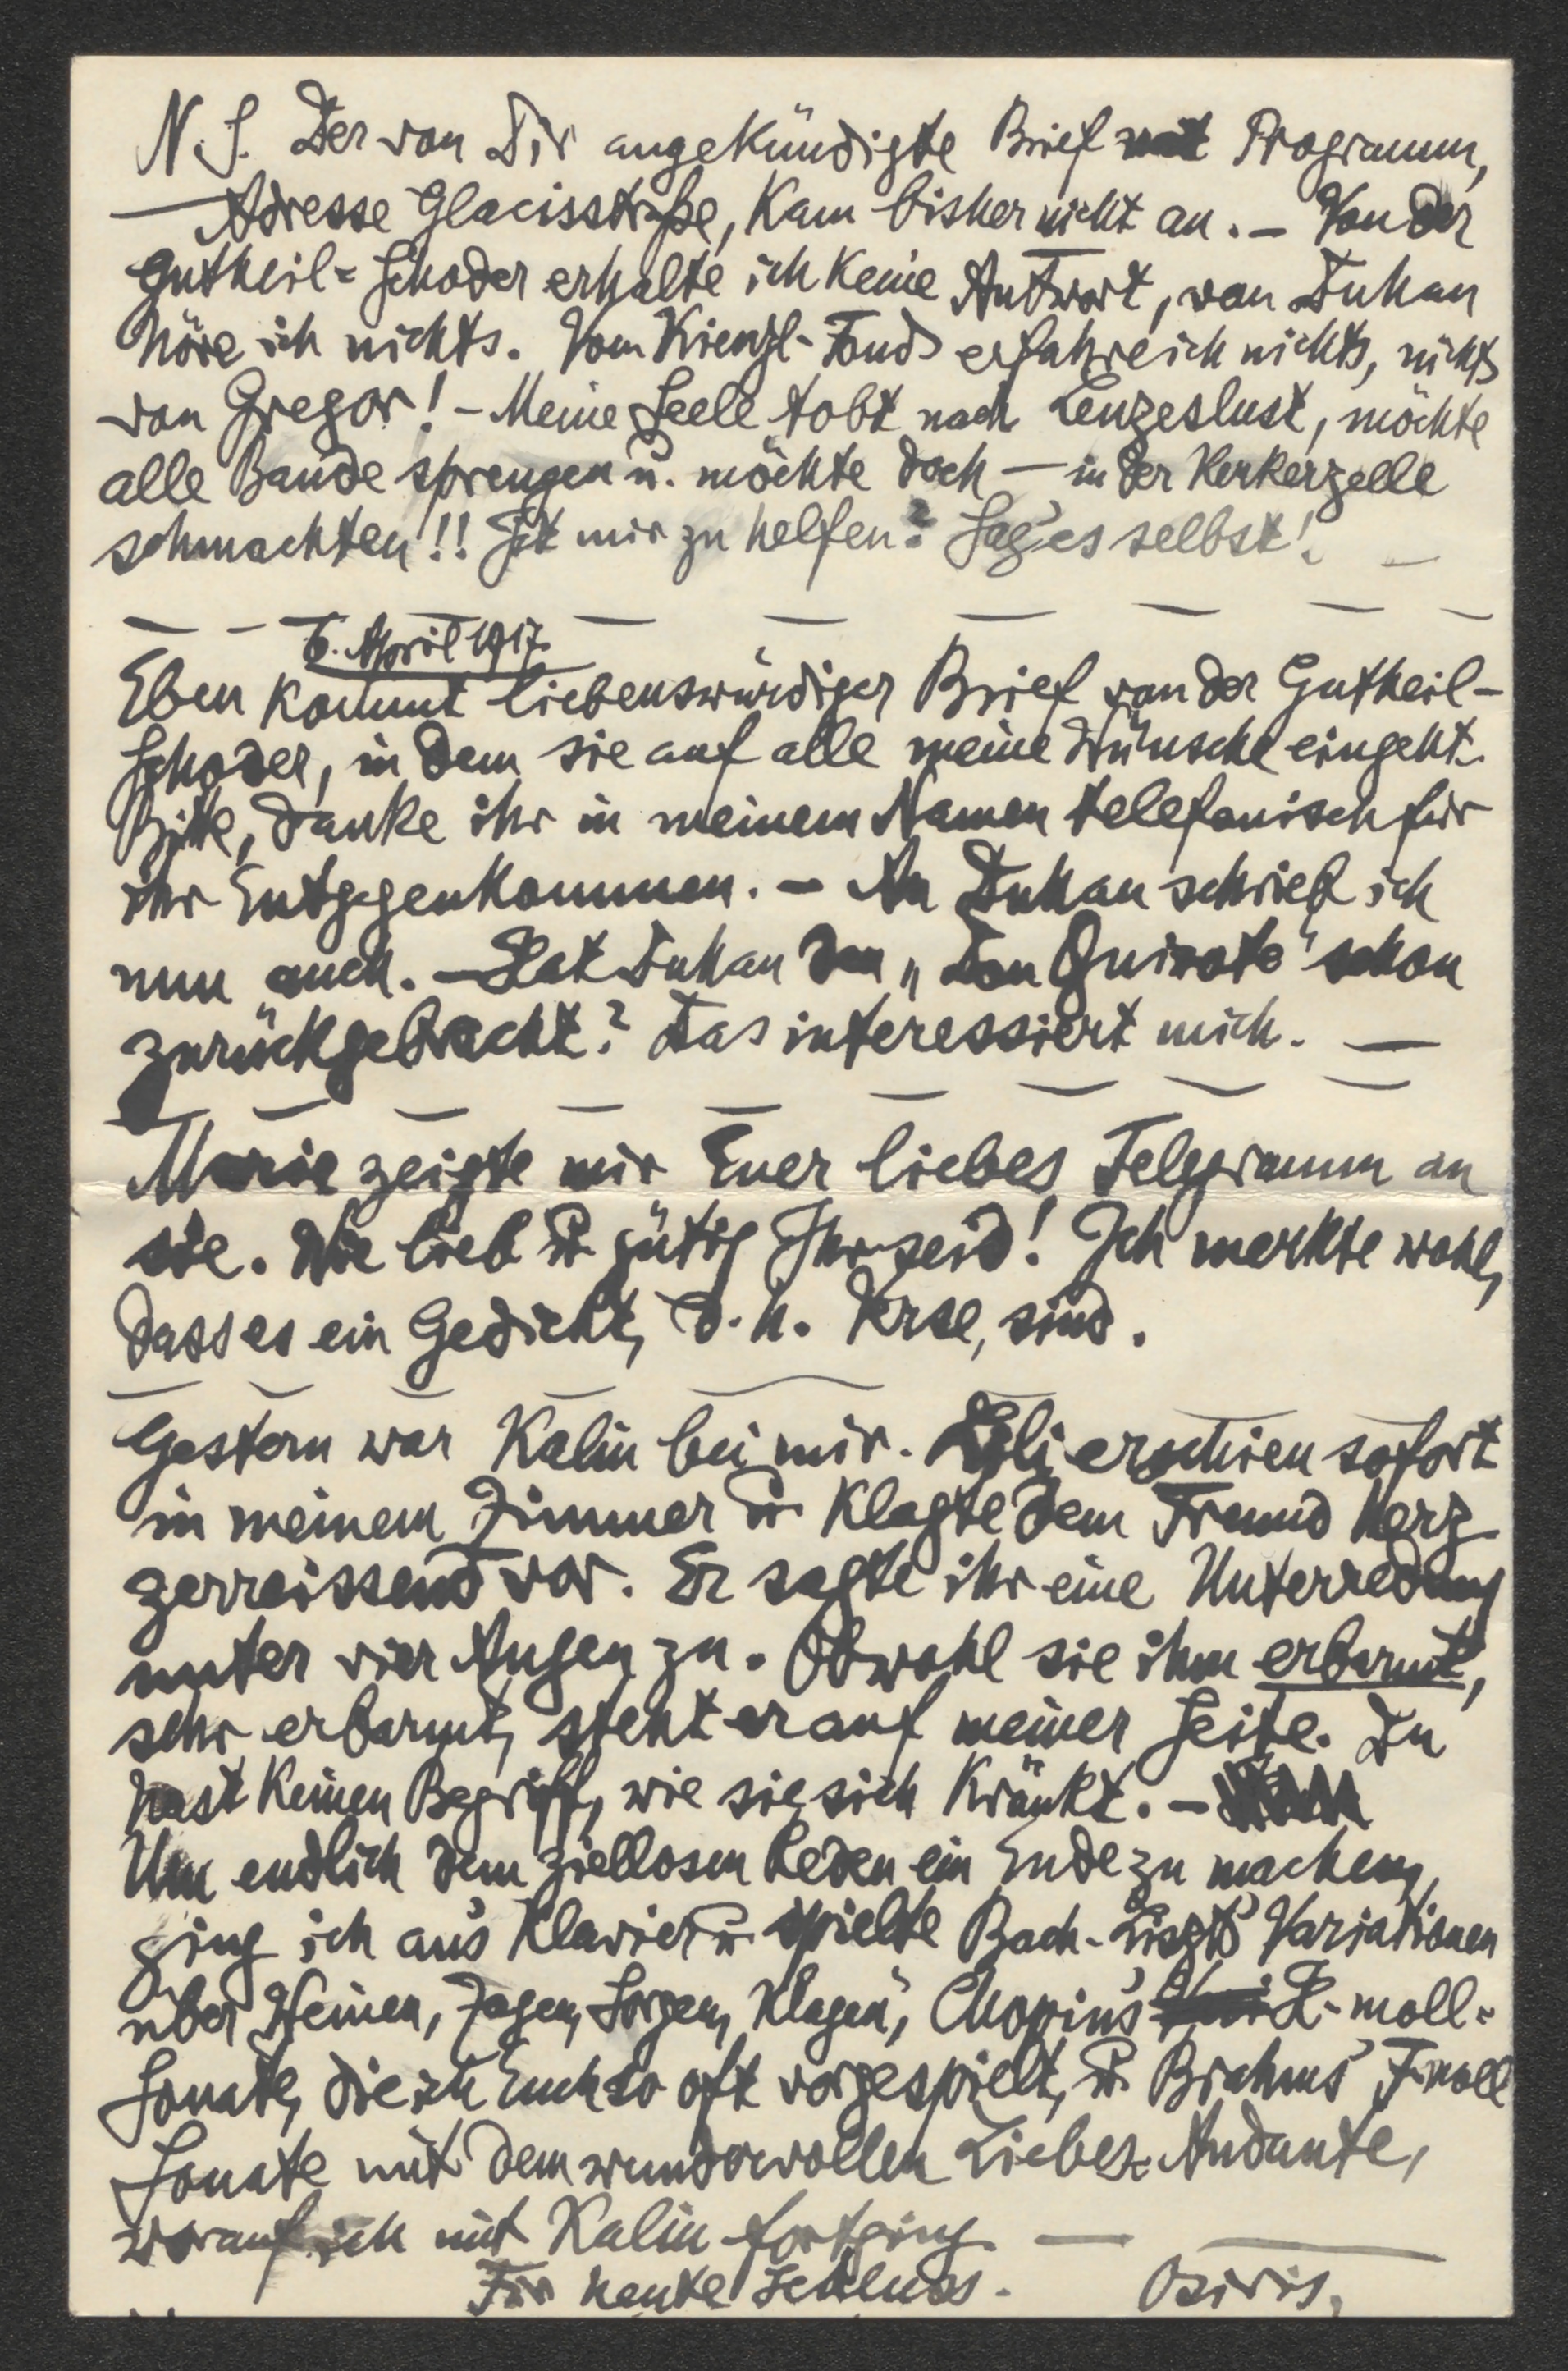 N. S. Der von Dir angekündigte Brief mit Programm,
Adresse Glacisstraße, kam bisher nicht an. – Von der
Gutheil-Schoder erhalte ich keine Antwort, von Duhan
höre ich nichts. Vom Kienzl-Fond erfahre ich nichts, nichts
von Gregor! – Meine Seele tobt nach Lenzeslust, möchte
alle Bande sprengen u. möchte doch – in der Kerkerzelle
schmachten!! Ist mir zu helfen? Sag' es selbst! –
6. April 1917.
Eben kommt liebenswürdiger Brief von der Gutheil-
Schoder, in dem sie auf alle meine Wünsche eingeht.
Bitte, danke ihr in meinem Namen telefonisch für
ihr Entgegenkommen. – An Duhan schrieb ich
nun auch. – Hat Duhan den „Don Quixote" schon
zurückgebracht? Das interessiert mich. –
Marie zeigte mir Euer liebes Telegramm an
sie. Wie lieb u. gütig Ihr seid! Ich merkte wohl,
dass es ein Gedicht, d. h. Verse, sind.
Gestern war Kalin bei mir. Lili erschien sofort
in meinem Zimmer u. klagte dem Freund herz
zerreissend vor. Er sagte ihr eine Unterredung
unter vier Augen zu. Obwohl sie ihm erbarmt,
sehr erbarmt, steht er auf meiner Seite. Du
hast keinen Begriff, wie sie sich kränkt. –
Um endlich dem ziellosen Reden ein Ende zu machen,
ging ich ans Klavier u. spielte Bach-Liszts' Variationen
über Weinen, Zagen, Sorgen, Klagen', Chopin's H-moll-
Sonate, die ich Euch so oft vorgespielt, u. Brahms' F-moll
Sonate mit dem wundervollen Liebes-Andante,
worauf ich mit Kalin fortging. –
Für heute Schluss. Osiris.